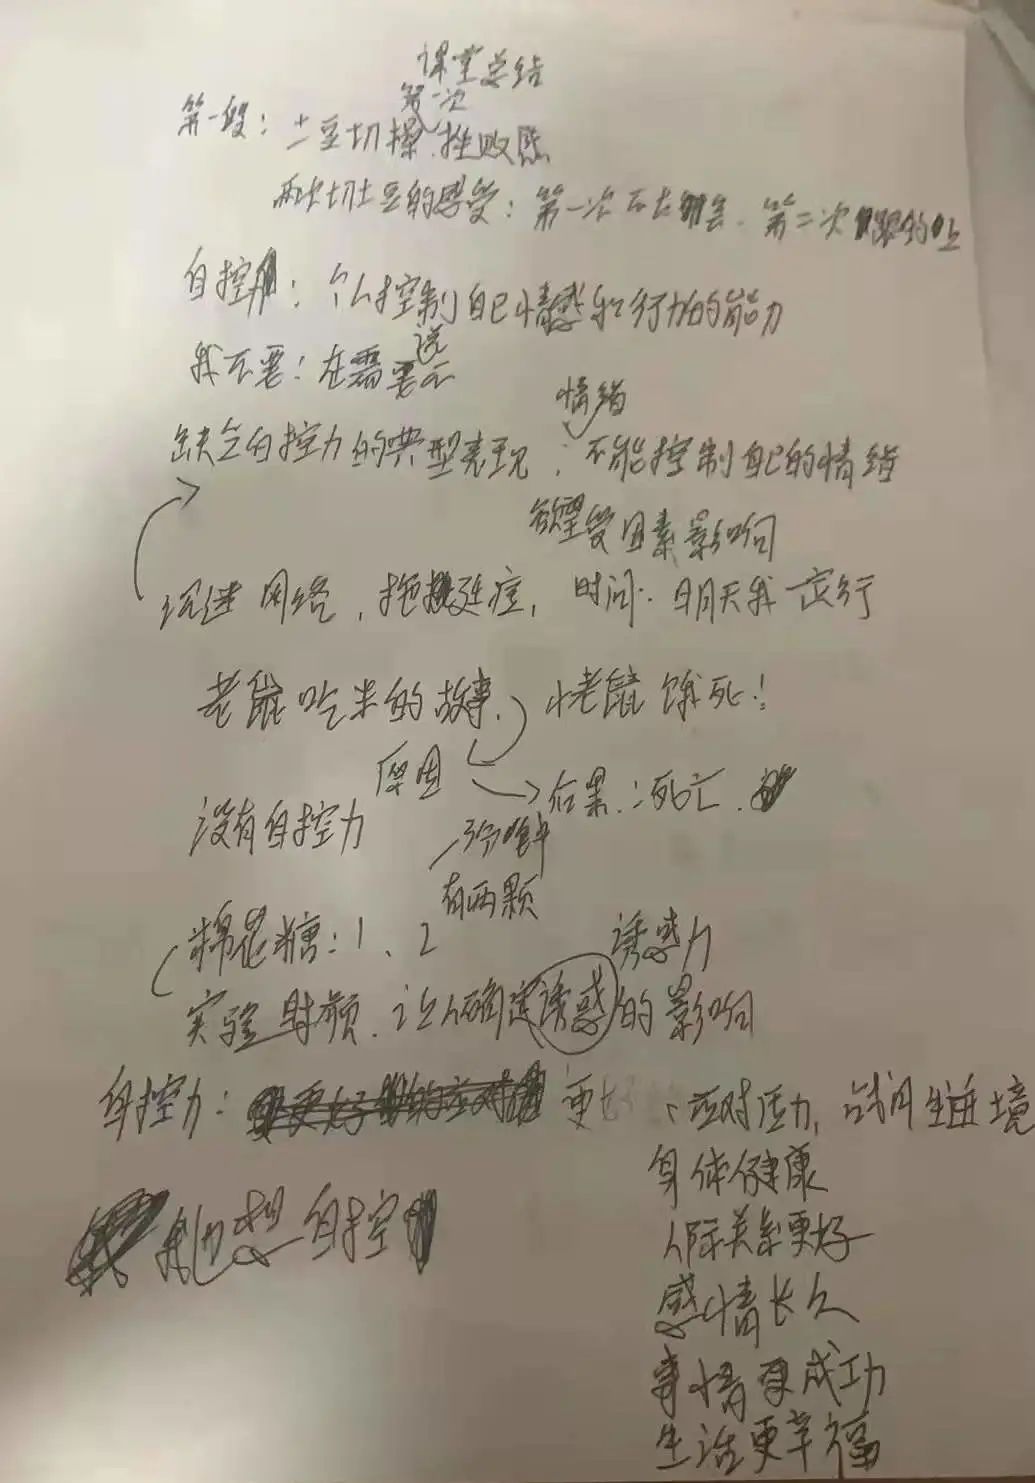 课堂总结
第一次
第一段：土豆切操 挫败感
两次切土豆的感受：第一次不太会、第二次跟的上
自控力：个人控制自己情感和行为的能力
我不要：在需要说不
情绪
缺乏自控力的典型表现：不能控制自己的情绪
欲望受因素影响
沉迷网络，拖延症，时间：明天我一定行
老鼠吃米的故事、小老鼠饿死！
原因
后果：死亡、
没有自控力
分钟
有两颗
棉花糖：1、2
诱惑力
实验视频、让人确定诱惑的影响
自控力：更好 、应对压力，
身体健康
人际关系更好
感情长久
事情更成功
生活更幸福
想自控